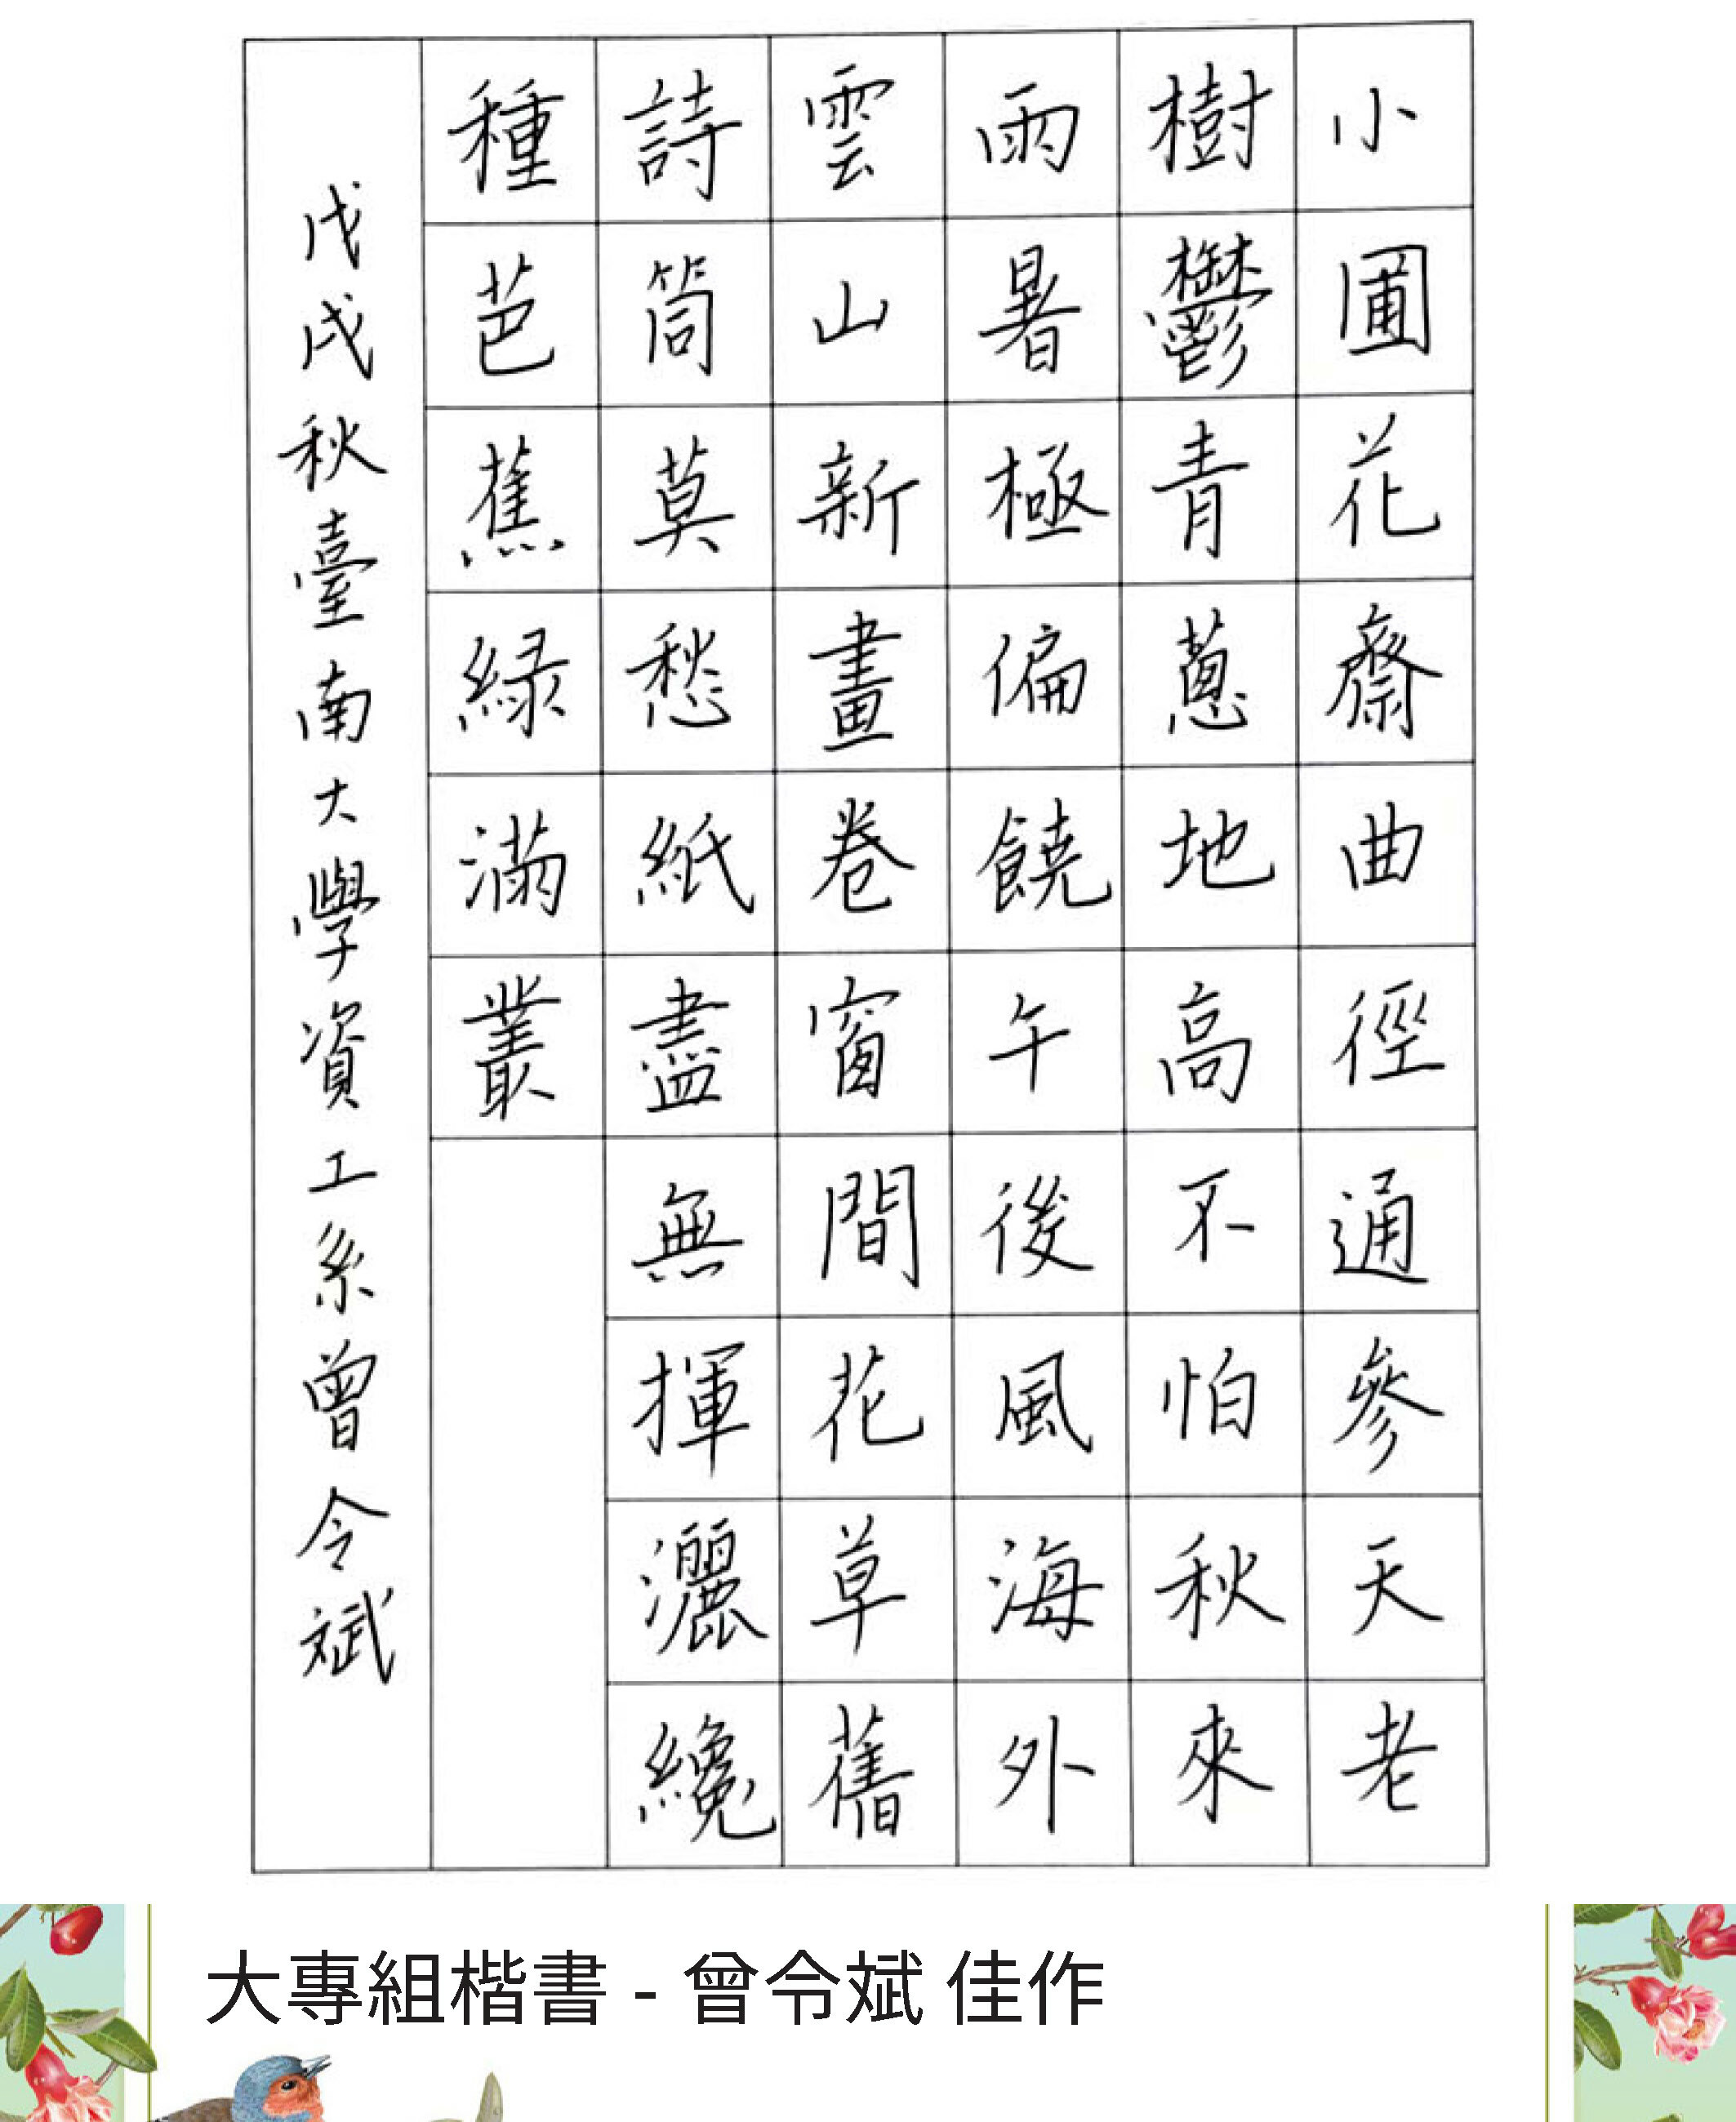 小圃花齋曲徑通參天老
樹鬱青蔥地高不怕秋來
雨暑極偏饒午後風海外
雲山新畫卷窗間花草舊
詩筒莫愁紙盡無揮灑纔
種芭蕉綠滿叢
戊戌秋臺南大學資工系曾令斌
大專組楷書 - 曾令斌 佳作